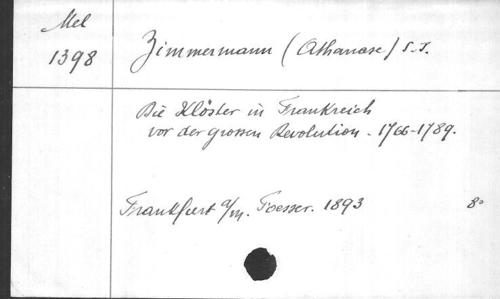 Mel
1398
Zimmermann (Athanase) S.J.
Die Klöster in Frankreich
vor der grossen Revolution. 1766-1789.
Frankfurt a/m. Foesser. 1893
8°